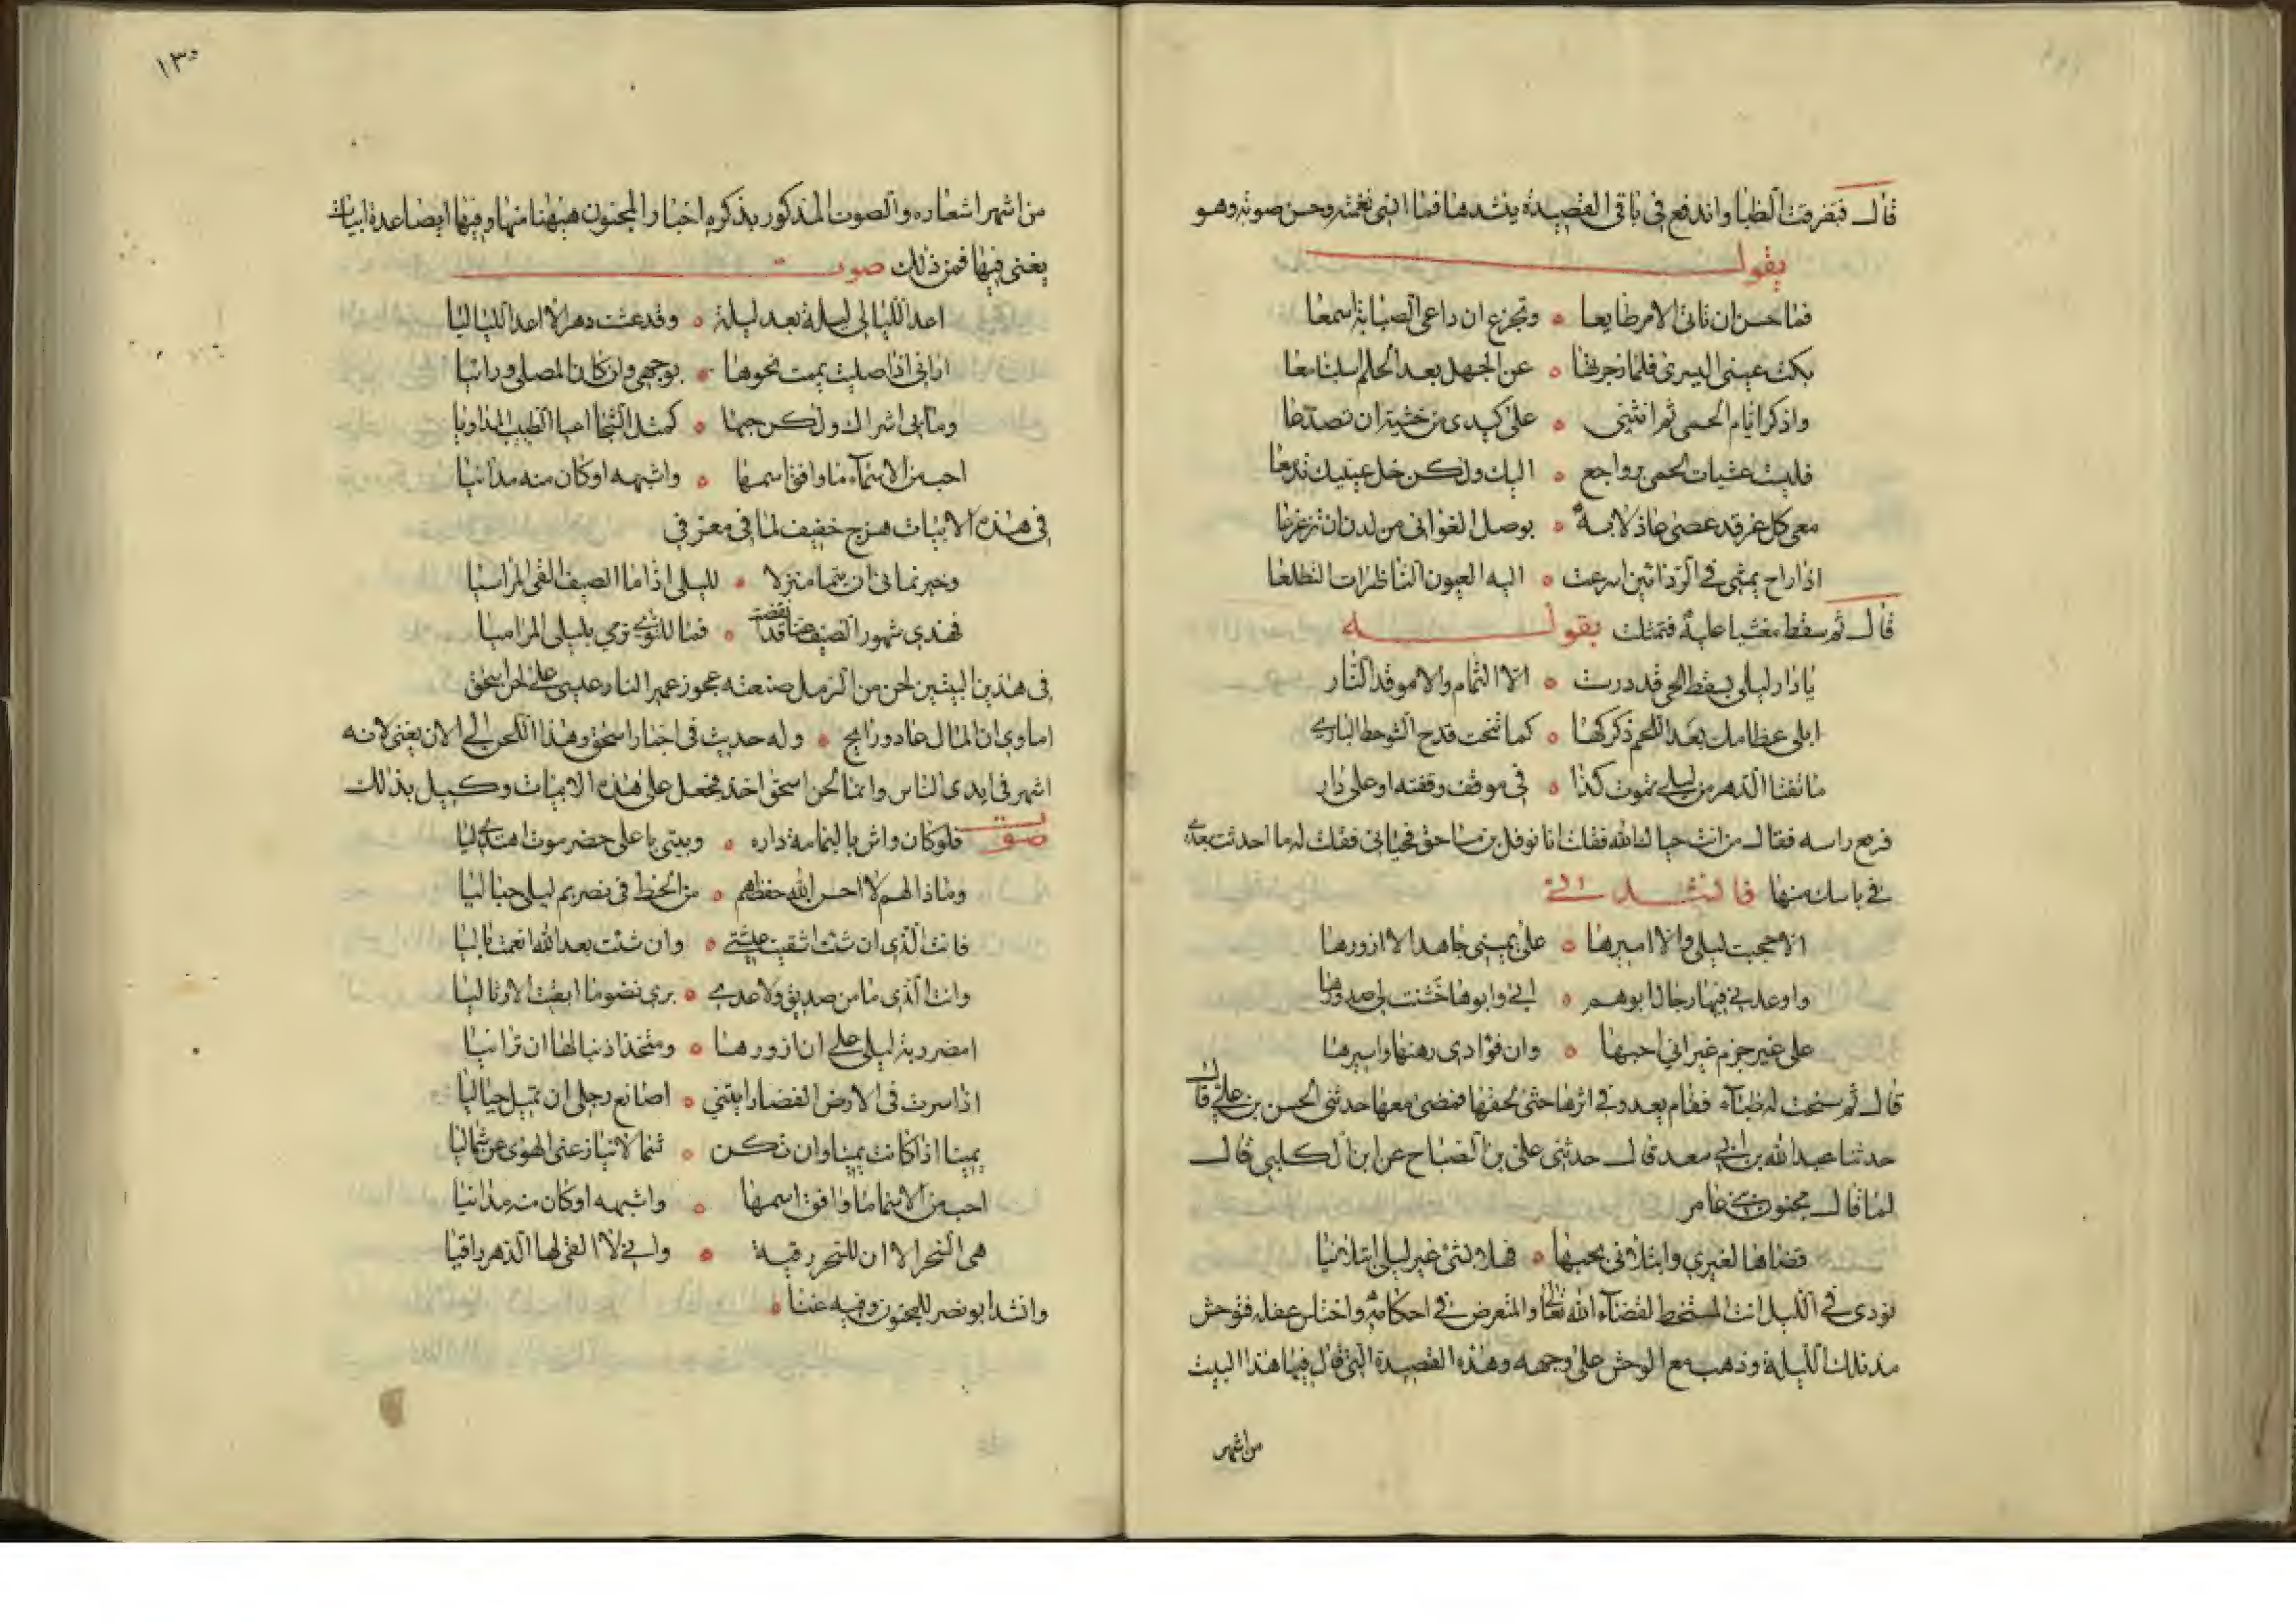 قال فتفرقت الظبا واندفع في باقي القصيدة ينشدها فما انسى نغمته وحسن صوته وهو
يقول
فما حسن ان تاتى الامر طايعا ٥ وتجزع ان داعى الصبابة اسمعا
بكت عينى اليسرى فلما زجرتها ٥ عن الجهل بعد الحلم اسبلتا معا
واذكر ايام الحمى ثم انثنى ٥ على كبدى من خشية ان تصدعا
فليست عشيات الحمى برواجع ٥ اليك ولكن خل عينيك تدمعا
معى كل غر قد عصى عاذلاته ٥ بوصل الغوانى من لدن ان ترعرعا
اذا راح يمشى في الردائين اسرعت ٥ اليه العيون الناظرات التطلعا
قال ثم سقط مغشيا عليه فتمثلت بقوله
يا دار ليلى بسقط الحى قد درست ٥ الا الثمام والا موقد النار
ابلى عظامك بعد اللحم ذكركها ٥ كما تنحت قدح الشوحط البارى
ما تفتا الدهر من ليلى تموت كذا ٥ في موقف وقفته او على دار
فرفع راسه فقال من انت حياك الله فقلت انا نوفل بن مساحق فحيانى فقلت له ما احدثت بعدى
في ياسك منها فانشدنى
الا حجبت ليلى والا اميرها ٥ على يمينى جاهدا لا ازورها
واوعدنى فيها رجال ابوهم ٥ ابى وابوها خشنت لى صدورها
على غير جرم غير انى احبها ٥ وان فؤادى رهنها واسيرها
قال ثم سنحت له ظباء فقام يعدو في اثرها حتى لحقها فمضى معها حدثنى الحسن بن على قال
حدثنا عبد الله بن ابى سعد قال حدثنى على بن الصباح عن ابن الكلبى قال
لما قال مجنون بنى عامر
قضاها لغيرى وابتلانى بحبها ٥ فهلا بشئ غير ليلى ابتلانيا
نودى في الليل انت المتسخط لقضاء الله تعالى والمتعرض في احكامه واختلس عقله فتوحش
منذ تلك الليلة وذهب مع الوحش على وجهه وهذه القصيدة التى قال فيها هذا البيت
من اشهر
١٣٠
من اشهر اشعاره والصوت المذكور بذكره اخبار المجنون هيهنا منها وفيها ايضا عدة ابيات
يغنى فيها فمن ذلك صوت
اعد الليالى ليلة بعد ليلة ٥ وقد عشت دهرا لا اعد اللياليا
ارانى اذا صليت يممت نحوها ٥ بوجهى وان كان المصلى ورائيا
وما بى اشراك ولكن حبها ٥ كمثل الشجا اعيا الطبيب المداويا
احب من الاسماء ما وافق اسمها ٥ واشبهه او كان منه مدانيا
في هذه الابيات هزج خفيف لمن في معزفى
وخبرتمانى ان تيما منزلا ٥ لليلى اذا ما الصيف القى المراسيا
فهذى شهور الصيف عنا قد انقضت ٥ فما للنوى ترمى بليلى المراميا
في هذين البيتين لحن من الرمل صنعته عجوز عمير النار عيسى على لحن اسحق
اماوى ان المال غاد ورايح ٥ وله حديث في اخبار اسحق وهذا اللحن الى الان يغنى لانه
اشهر في ايدى الناس وانما لحن اسحق اخذ فجعل على هذه الابيات وكيل بذلك
صوت فلو كان واش باليمامة داره ٥ وبيتى باعلى حضرموت اهتدى ليا
وماذا لهم لا احسن الله حفظهم ٥ من الحظ في تصريم ليلى حباليا
فانت الذى ان شئت اشقيت عيشتى ٥ وان شئت بعد الله انعمت باليا
وانت الذى ما من صديق ولا عدى ٥ يرى نضو ما ابقيت الا رثى ليا
امضروبة ليلى على ان ازورها ٥ ومتخذ ذنبا لها ان ترانيا
اذا سرت في الارض الفضا رايتنى ٥ اصانع رجلى ان تميل حياليا
يمينا اذا كانت يمينا وان تكن ٥ شمالا ينازعنى الهوى عن شماليا
احب من الاسما ما وافق اسمها ٥ واشبهه او كان منه مدانيا
هى السحر الا ان للسحر رقية ٥ وانى لا القى لها الدهر راقيا
وانشد ابو نصر للمجنون وفيه غنا ٥